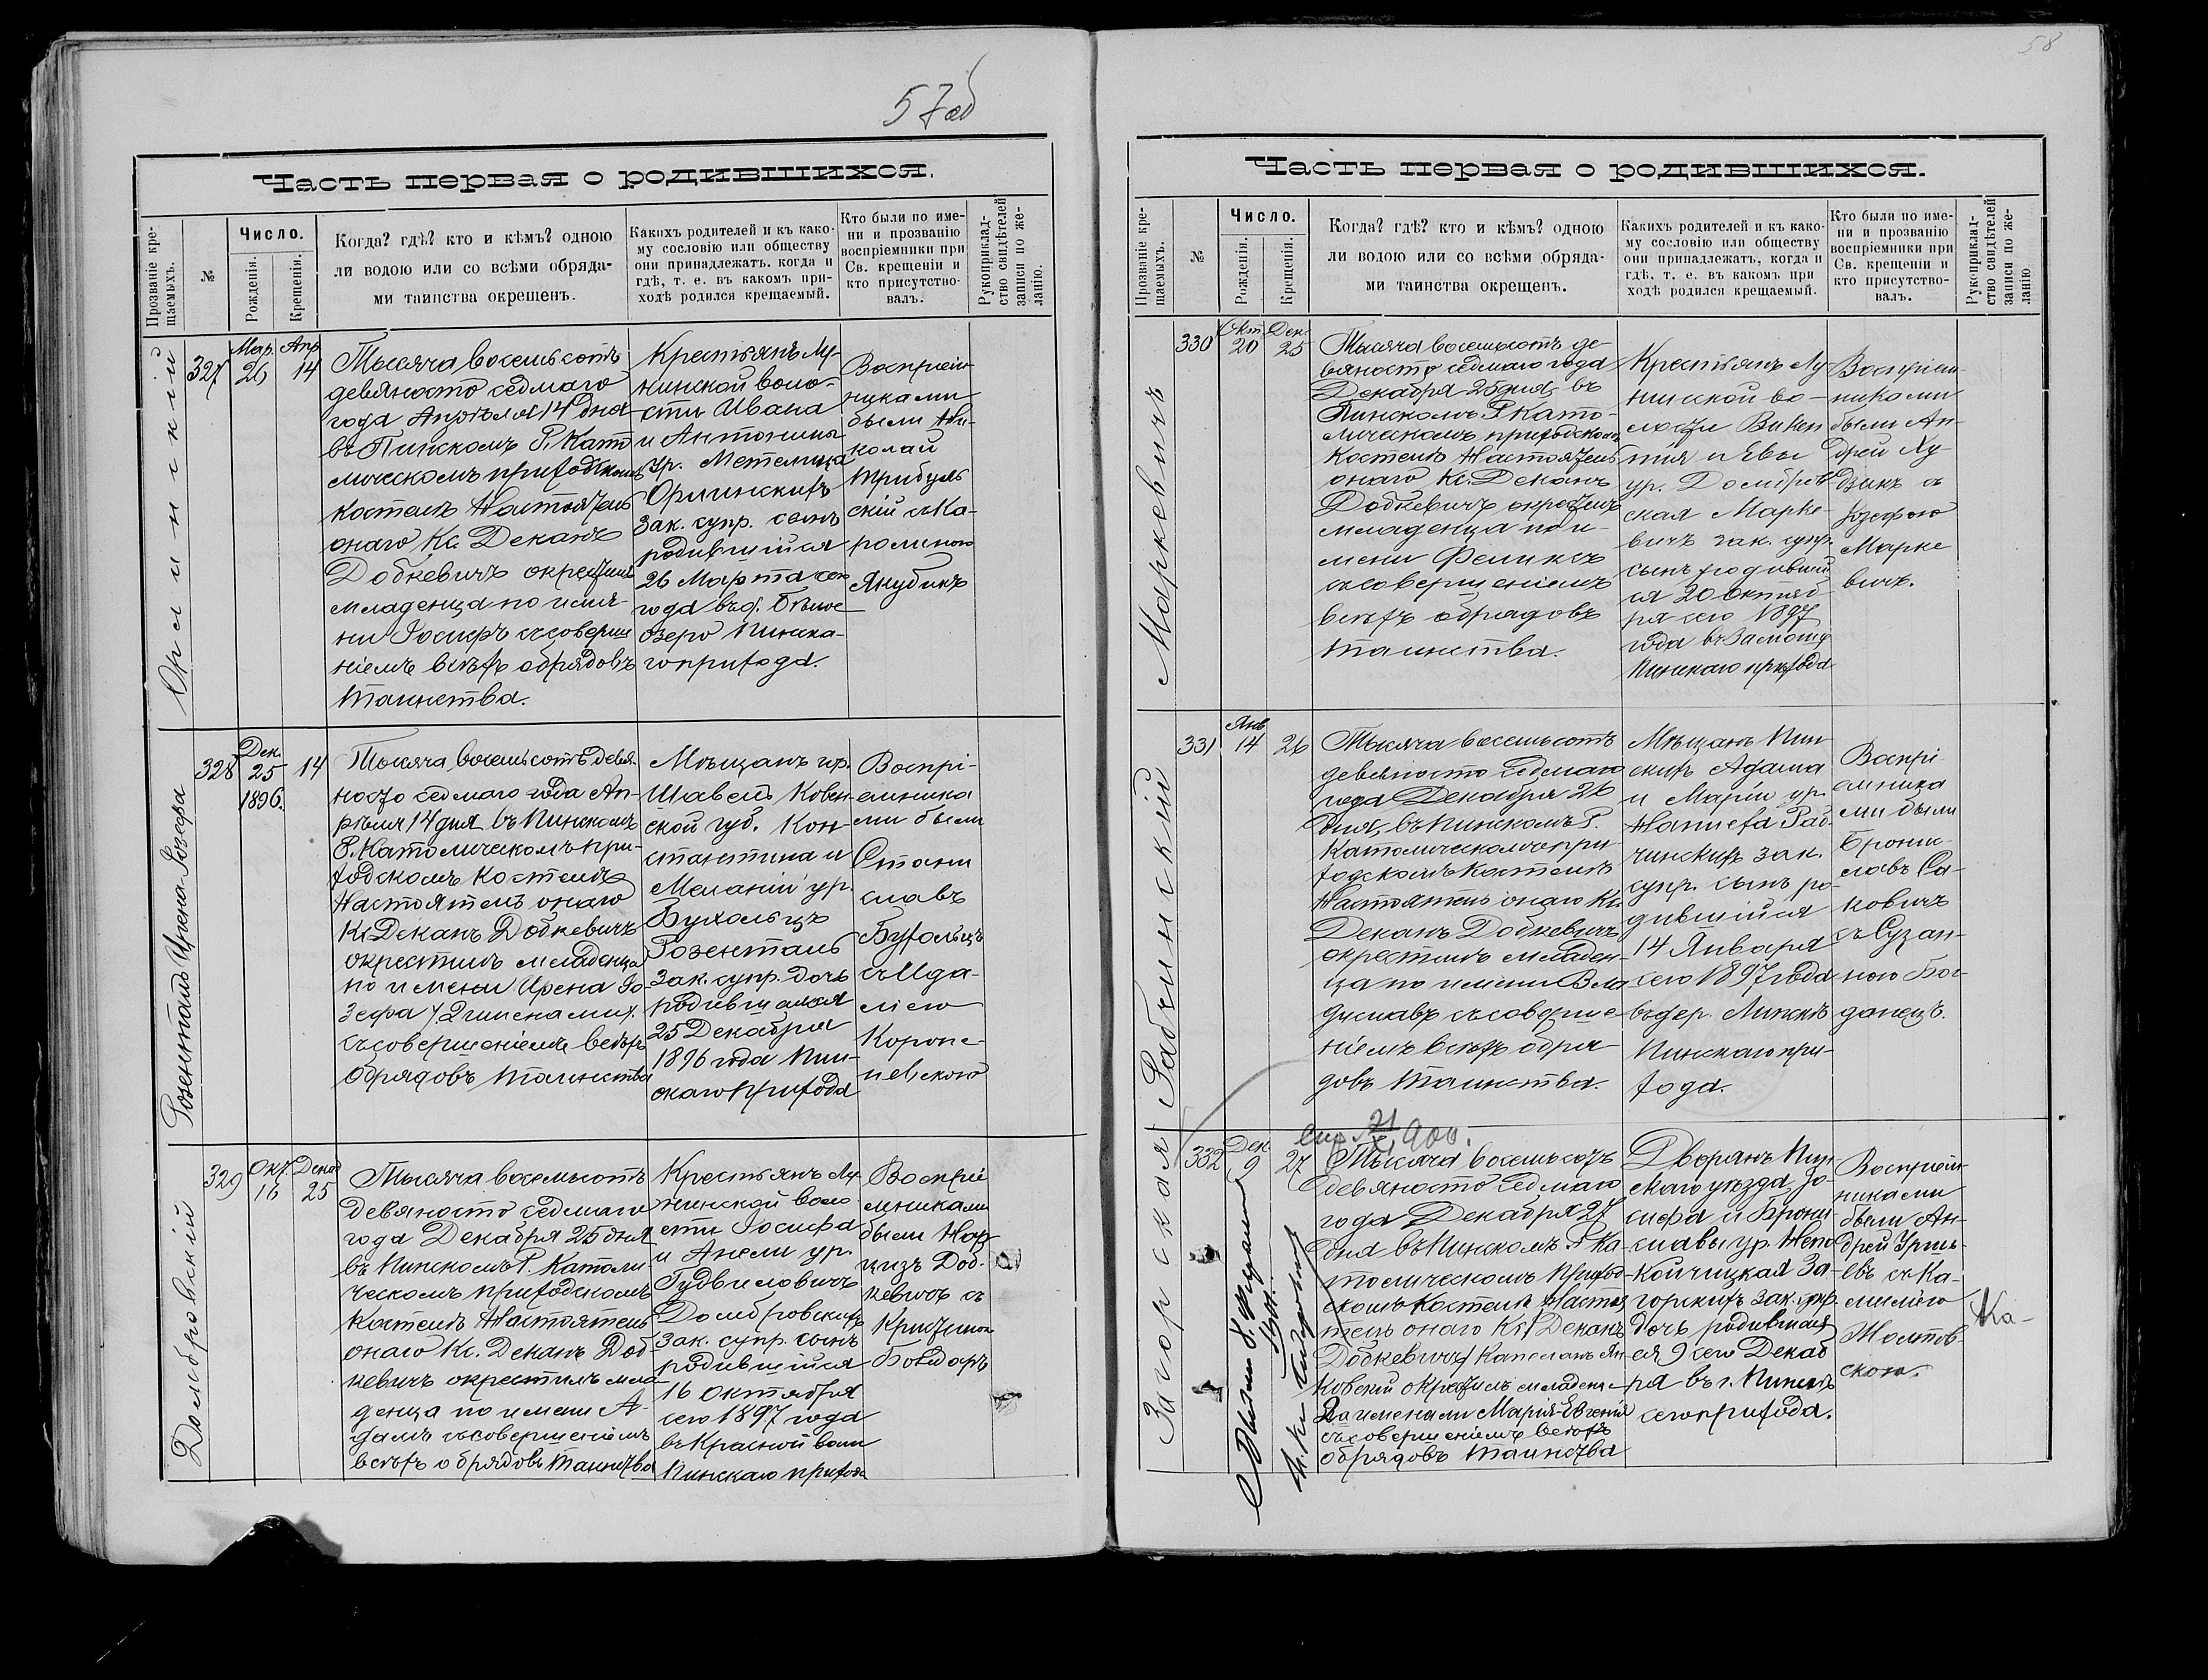 57 об
Часть первая о родившихся.
Прозваніе кре-
щаемыхъ.
№
Число.
Рожденія.
Крещенія.
Когда? гдѣ? кто и кѣмъ? одною
ли водою или со всѣми обряда-
ми таинства окрещенъ.
Какихъ родителей и къ како-
му сословію или обществу
они принадлежатъ. когда и
гдѣ, т. е. въ какомъ при-
ходѣ родился крещаемый.
Кто были по име-
ни и прозванію
воспріемники при
Св. крещеніи и
кто присутство-
валъ.
Рукоприклад-
ство свидѣтелей
записи по же-
ланію.
327
Мар.
26
Апр.
14
Тысяча восемьсотъ
девяносто седмаго
года Апрѣля 14 дня
въ Пинскомъ Р. Като
лическомъ приходскомъ
костелѣ Настоятель
онаго Кс. Деканъ
Добкевичъ окрестилъ
младенца по име-
ни Іосифъ съ соверше
ніемъ всѣхъ обрядовъ
таинства.
Крестьянъ Лу-
нинской воло-
сти Ивана
и Антонины
ур. Метелица
зак. супр. сынъ
родившійся
26 Марта сего
года въ д. Бѣлое
озеро Пинска-
го прихода.
Воспріем
никами
были Ни-
колай
скій съ Ка-
ролиною
Якубикъ
Розенталь Ирена-Іозефа
328
Дек.
25
1896.
14
Тысяча восемьсотъ девя-
носто седмаго года Ап-
рѣля 14 дня въ Пинскомъ
Р. Католическомъ при-
ходскомъ костелѣ
Настоятель онаго
Кс. Деканъ Добкевичъ
окрестилъ младенца
по имени Ирена Іо-
зефа /2 именами/
съ совершеніемъ всѣхъ
обрядовъ таинства
Мѣщанъ гр.
Шавель Ковен-
ской губ. Кон-
стантина и
Меланіи ур.
Бухольцъ
Розенталь
зак. супр. дочь
родившаяся
25 Декабря
1896 года Пин-
скаго прихода
Воспрі-
емника
ми были
Стани
славъ
Бухольцъ
съ Ида-
ліею
Домбровскій
329
Окт.
16
Декаб
25
Тысяча восемьсотъ
девяносто седмаго
года Декабря 25 дня
въ Пинскомъ Р. Католи-
ческомъ приходскомъ
костелѣ Настоятель
онаго Кс. Деканъ Доб-
кевичъ окрестилъ мла-
денца по имени А-
дамъ съ совершеніемъ
всѣхъ обрядовъ таинства
Крестьянъ Лу-
нинской воло
сти Іосифа
и Анели ур.
Гудвиловичъ
Домбровскихъ
зак. супр. сынъ
родившійся
16 Октября
сего 1897 года
въ Красной воли
Пинскаго прихода
Воспріе
мниками
были Нар
цизъ Доб-
кевичъ съ
58
Часть первая о родившихся.
Прозваніе кре-
щаемыхъ.
№
Число.
Рожденія.
Крещенія.
Когда? гдѣ? кто и кѣмъ? одною
ли водою или со всѣми обряда-
ми таинства окрещенъ.
Какихъ родителей и къ како-
му сословію или обществу
они принадлежатъ, когда и
гдѣ, т. е. въ какомъ при
ходѣ родился крещаемый.
Кто были по име-
ни и прозванію
воспріемники при
Св. крещеніи и
кто присутство-
валъ.
Рукоприклад-
ство свидѣтелей
записи по же-
ланію
Маркевичъ
330
Окт.
20
Дек.
25
Тысяча восемьсотъ де-
вяносто седмаго года
Декабря 25 дня, въ
Пинскомъ Р. Като-
лическомъ приходскомъ
костелѣ Настоятель
онаго Кс. Деканъ
Добкевичъ окрестилъ
младенца по и-
мени Феликсъ
съ совершеніемъ
всѣхъ обрядовъ
таинства.
Крестьянъ Лу
нинской во-
лости Викен
тія и Евы
ур. Домбров
ская Марке-
вичъ зак. супр.
сынъ родивший
ся 20 Октяб-
ря сего 1897
года въ Замошу
Пинскаго прихода
Воспріем-
никами
были Ан-
дрей Лу-
дзикъ съ
Іозефою
Марке
вичъ.
331
Янв
14
26
Тысяча восемьсотъ
девяносто седмаго
года Декабря 26
дня, въ Пинскомъ Р.
Католическомъ при
ходскомъ костелѣ
Настоятель онаго Кс.
Деканъ Добкевичъ
окрестилъ младен-
ца по имени Вла
диславъ съ соверше-
ніемъ всѣхъ обря-
довъ таинства.
Мѣщанъ Пин
скихъ Адама
и Маріи ур.
зак.
супр. сынъ ро-
дившійся
14 Января
сего 1897 года
Пинскаго при-
хода.
Воспрі
емника
ми были
Брони-
славъ Са-
ковичъ
съ Сузан-
ною Бог-
данецъ.
Загорская
332
Дек
9
27
Тысяча восемьсотъ
девяносто седмаго
года Декабря 27
дня въ Пинскомъ Р. Ка-
толическомъ приход-
скомъ костелѣ Настоя
тель онаго Кс. Деканъ
Добкевичъ / Капеланъ Ян-
ковскій окрестилъ младенца
2 именами Марія-Евгенія
съ совершеніемъ всѣхъ
обрядовъ таинства
Дворянъ Пин
скаго уѣзда Іо-
сифа и Брони-
славы ур. Непо
койчицкая За-
горскихъ зак. супр.
дочь родившая
ся 9 сего Декаб
ря въ г. Пинскѣ
сего прихода.
Воспріем-
никами
были Ан-
дрей
съ Ка-
милліею
скою.